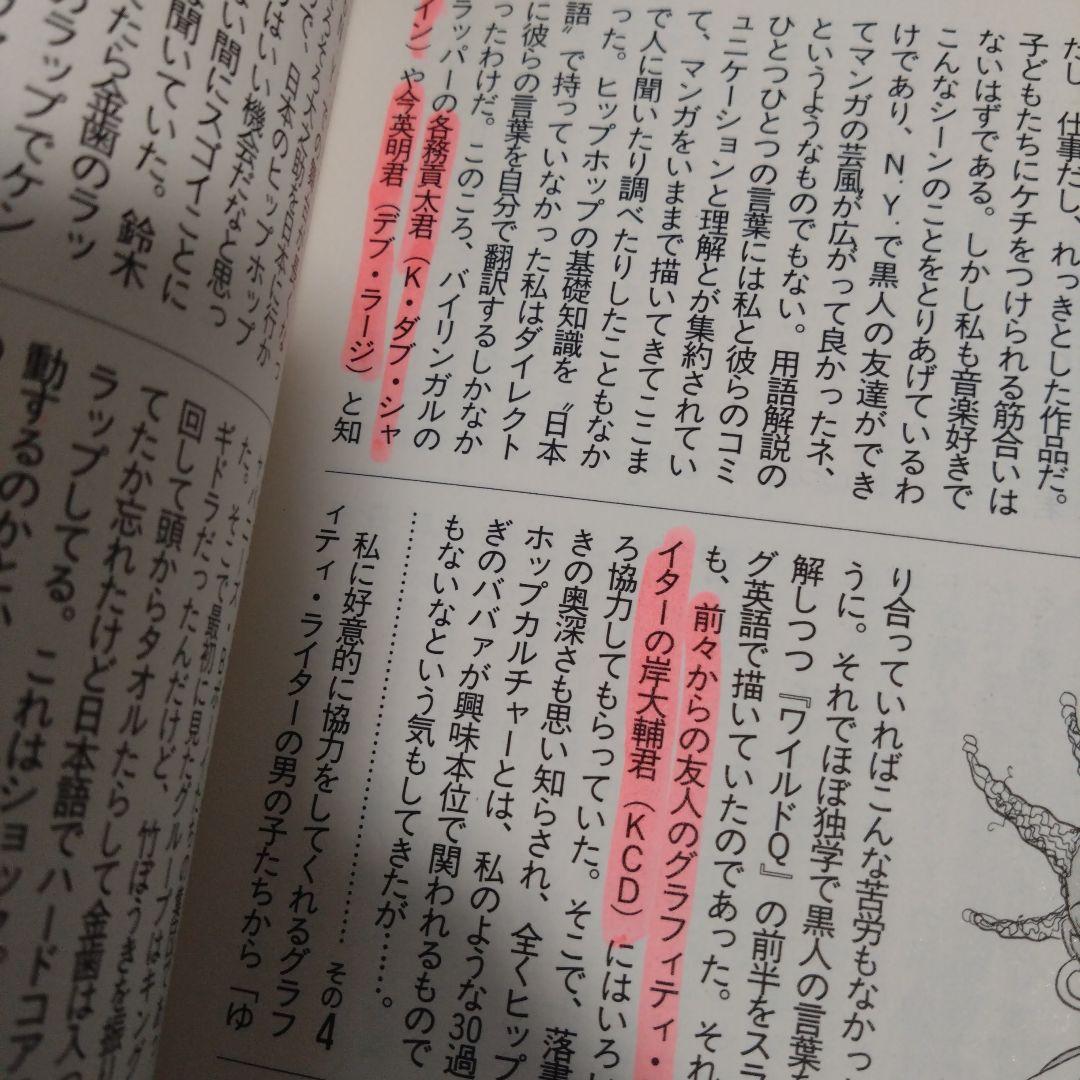 だし、仕事だし、れっきとした作品だ。
子どもたちにケチをつけられる筋合いは
ないはずである。しかし私も音楽好きで
こんなシーンのことをとりあげているわ
けであり、N.Y.で黒人の友達ができ
てマンガの芸風が広がって良かったネ、
というようなものでもない。用語解説の
ひとつひとつの言葉には私と彼らのコミ
ュニケーションと理解とが集約されてい
て、マンガをいままで描いてきてここま
で人に聞いたり調べたりしたこともなか
った。ヒップホップの基礎知識を〝日本
語〟で持っていなかった私はダイレクト
に彼らの言葉を自分で翻訳するしかなか
ったわけだ。このころ、バイリンガルの
ラッパーの各務貢太君（K・ダブ・シャ
イン）や今英明君（デブ・ラージ）と知
り合っていればこんな苦労もなかっ
うに。それでほぼ独学で黒人の言葉
解しつつ『ワイルドQ』の前半をスラ
グ英語で描いていたのであった。それ
も、前々からの友人のグラフィティ・
イターの岸大輔君（KCD）にはいろ
ろ協力してもらっていた。そこで、落書
きの奥深さも思い知らされ、全くヒップ
ホップカルチャーとは、私のような30過
ぎのババァが興味本位で関われるもので
もないなという気もしてきたが……。
…………………………… その4
私に好意的に協力をしてくれるグラフ
ィティ・ライターの男の子たちから「ゆ
はいい機会だなと思っ
て、日本のヒップホップ
ない間にスゴイことに
聞いていた。鈴木
たら金歯のラッ
のラップでケン
た。そこで最初に見たグループはキング
ギドラだったんだけど、竹ぼうきを振り
回して頭からタオルたらして金歯は入っ
てたか忘れたけど日本語でハードコア
ラップしてる。これはショック。
動するのかとい